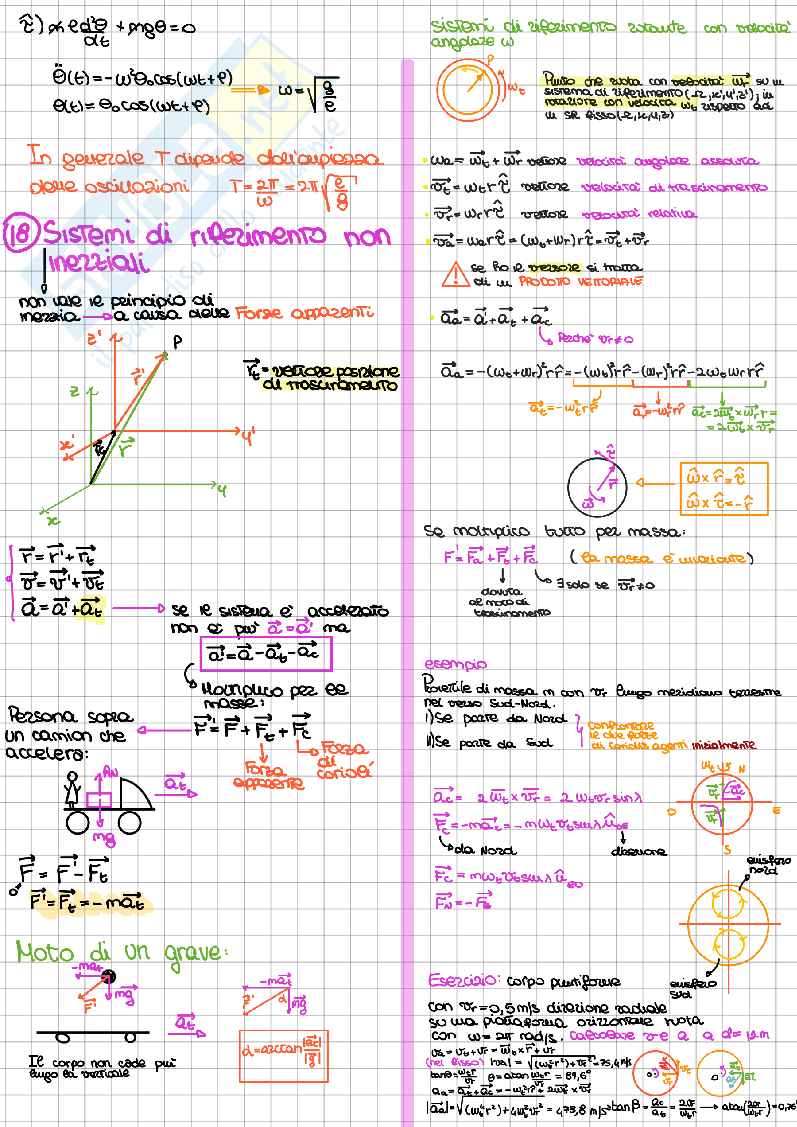 τ̂) m l d²θ/dt + mgθ = 0
θ̈(t) = -ω²θ₀cos(ωt+φ) ⟹ ω = √(g/l)
θ(t) = θ₀cos(ωt+φ)
In generale T dipende dall'ampiezza
delle oscillazioni T = 2π/ω = 2π√(l/g)
18 Sistemi di riferimento non
inerziali
non vale il principio di
inerzia → a causa delle Forze apparenti
z' P
r'
z
r_t = vettore posizione
di trascinamento
x' r_t r y'
x y
r = r' + r_t
v = v' + v_t
a = a' + a_t → se il sistema è accelerato
non è più a = a' ma
a' = a - a_t - a_c
Moltiplico per le
masse:
F' = F + F_t + F_c
Forza apparente
Forza di Coriolis
Persona sopra
un camion che
accelera:
R_N a_t
mg
F' = F - F_t
F' = F_t = -ma_t
Moto di un grave:
-ma_t
F' mg a_t
-ma_t
α mg
α = arctan |a_t|/|g|
Il corpo non cade più
lungo la verticale
sistemi di riferimento rotante con velocità
angolare ω
P
ω_t
Punto che ruota con velocità ω_r su un
sistema di riferimento (Ω, x', y', z'), in
rotazione con velocità ω_t rispetto ad
un SR fisso (Ω, x, y, z)
ω_a = ω_t + ω_r vettore velocità angolare assoluta
v_t = ω_t r τ̂ vettore velocità di trascinamento
v_r = ω_r r τ̂ vettore velocità relativa
v_a = ω_a r τ̂ = (ω_t + ω_r) r τ̂ = v_t + v_r
se ho il versore si tratta
di un PRODOTTO VETTORIALE
a_a = a' + a_t + a_c
Perché v_r ≠ 0
a_a = -(ω_t + ω_r)² r r̂ = -(ω_t)² r r̂ - (ω_r)² r r̂ - 2ω_t ω_r r r̂
a_t = -ω_t² r r̂ a_r = -ω_r² r r̂ a_c = 2ω_t × ω_r r =
= 2ω_t × v_r
ω̂ × r̂ = τ̂
ω̂ × τ̂ = -r̂
Se moltiplico tutto per massa:
F' = F_a + F_t + F_c (la massa è invariante)
dovuta
al moto di
trascinamento
∃ solo se v_r ≠ 0
esempio
Proiettile di massa m con v_r lungo meridiano terrestre
nel verso Sud-Nord.
i) Se parte da Nord
ii) Se parte da Sud
confrontare
le due forze
di coriolis agenti inizialmente
a_c = 2ω_t × v_r = 2ω_t v_r sinλ
F_c = -ma_c = -mω_t v_t sinλ û_OE
da Nord direzione
F_c = mω_t v_t sinλ û_EO
F_N = -F_s
ω_t N
v_r a_c
O E
v_r
S
emisfero
nord
emisfero
sud
Esercizio: corpo puntiforme
con v_r = 0,5 m/s direzione radiale
su una piattaforma orizzontale ruota
con ω = 2π rad/s. calcolare v e a a d = 12 m
v_a = v_t + v_r = ω_t × r + v_r
(nel fisso) |v_a| = √((ω_t² r²) + v_r²) = 75,4 m/s
tanθ = ω_t r/v_r θ = atan ω_t r/v_r = 89,6°
a_a = a_t + a_c = -ω_t² r r̂ + 2ω_t × v_r
|a_a| = √((ω_t⁴ r²) + 4ω_t² v_r²) = 475,8 m/s² tanβ = a_c/a_t = 2v_r/(ω_t r) → atan(2v_r/(ω_t r)) = 0,76°